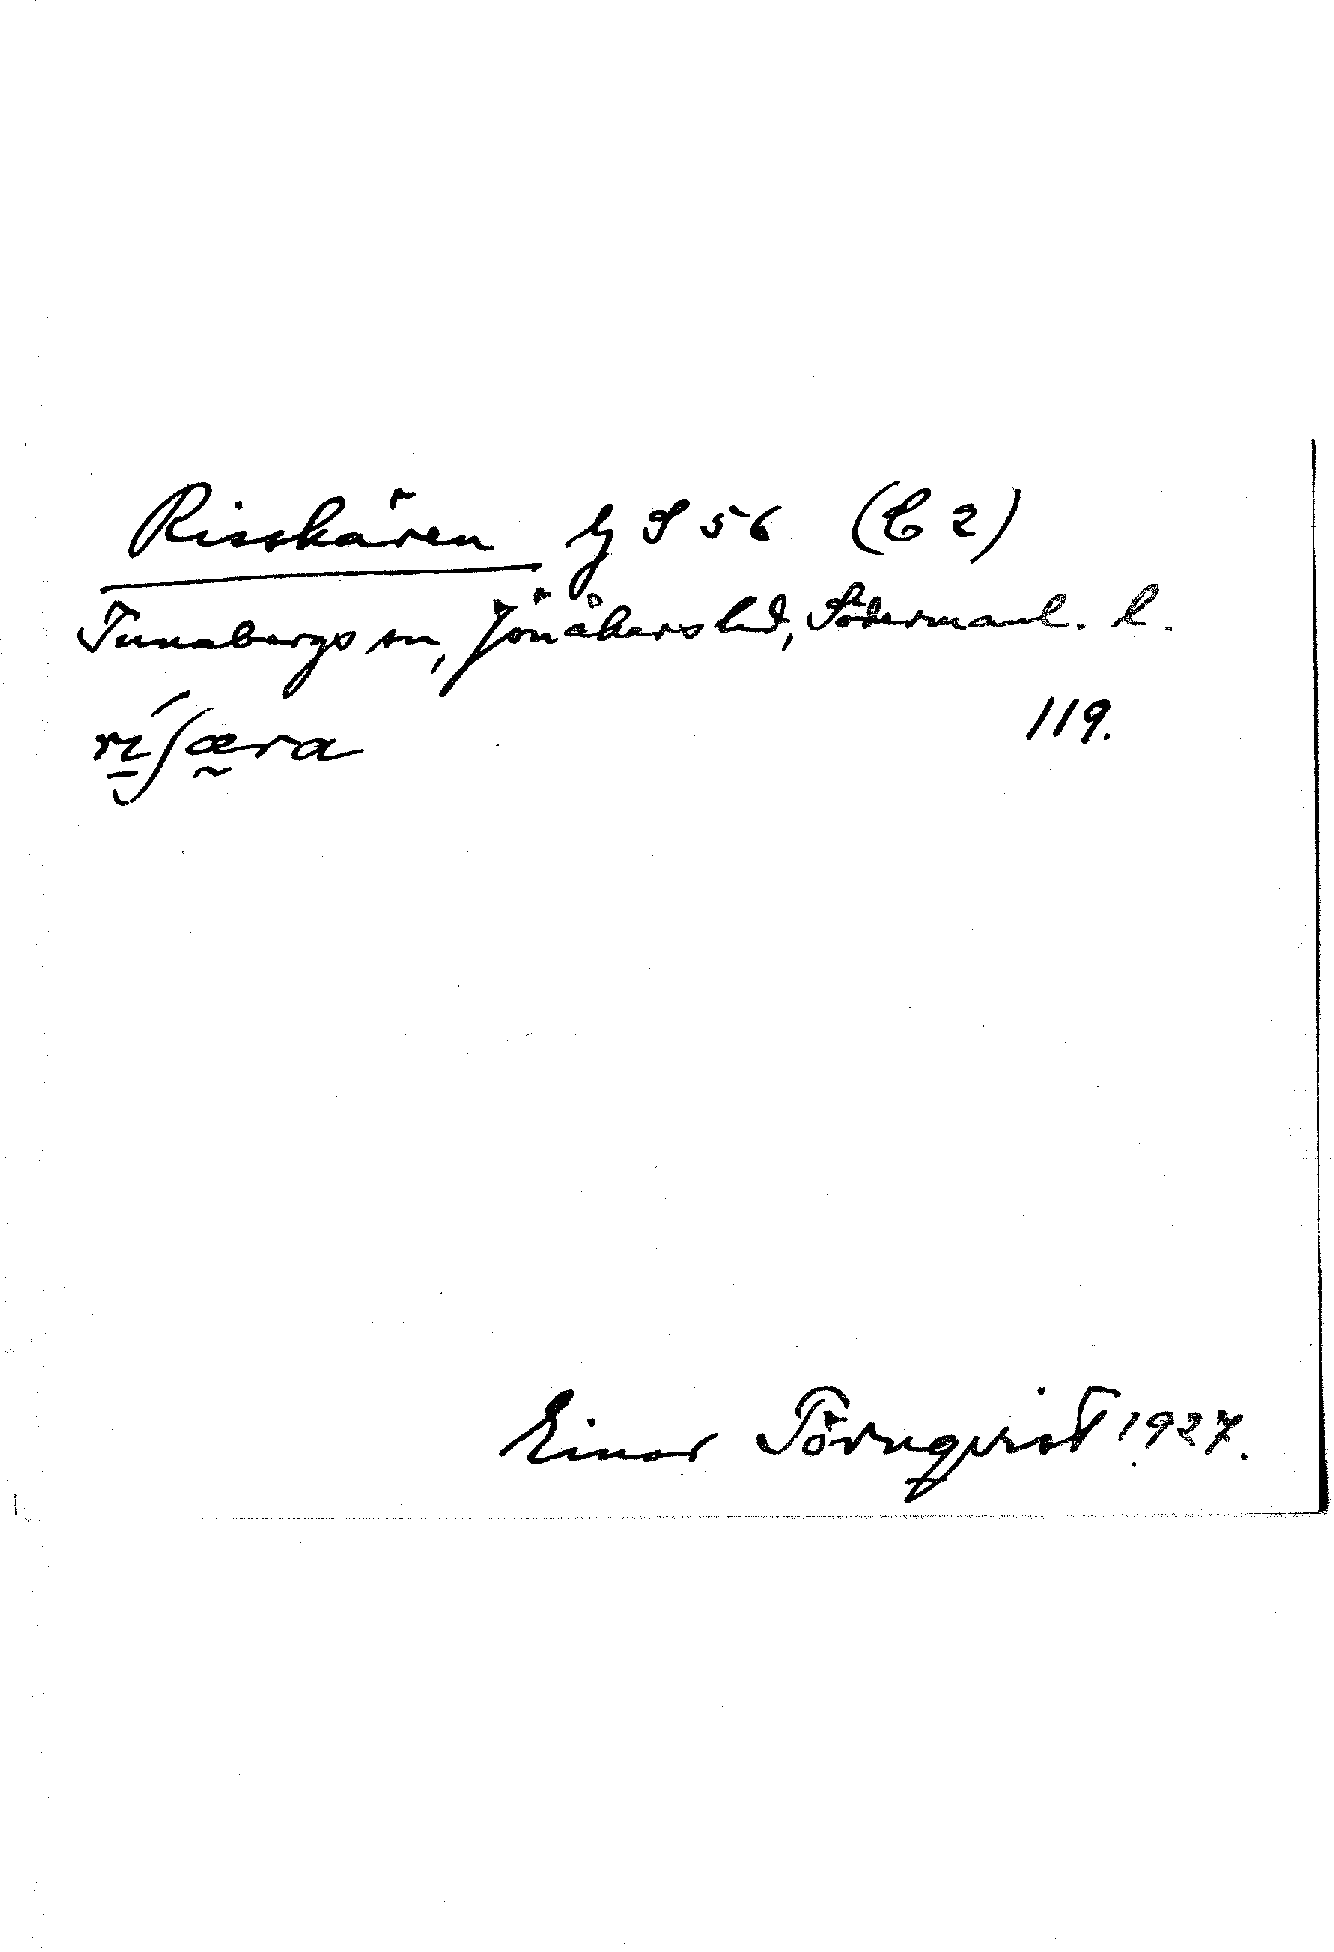 Risskären lj S 56 (C 2)
Tunabergs sn, Jönåkers hd, Södermanl. l.
ri&#x301;ʃæra
119.
Einar Törnqvist 1927.